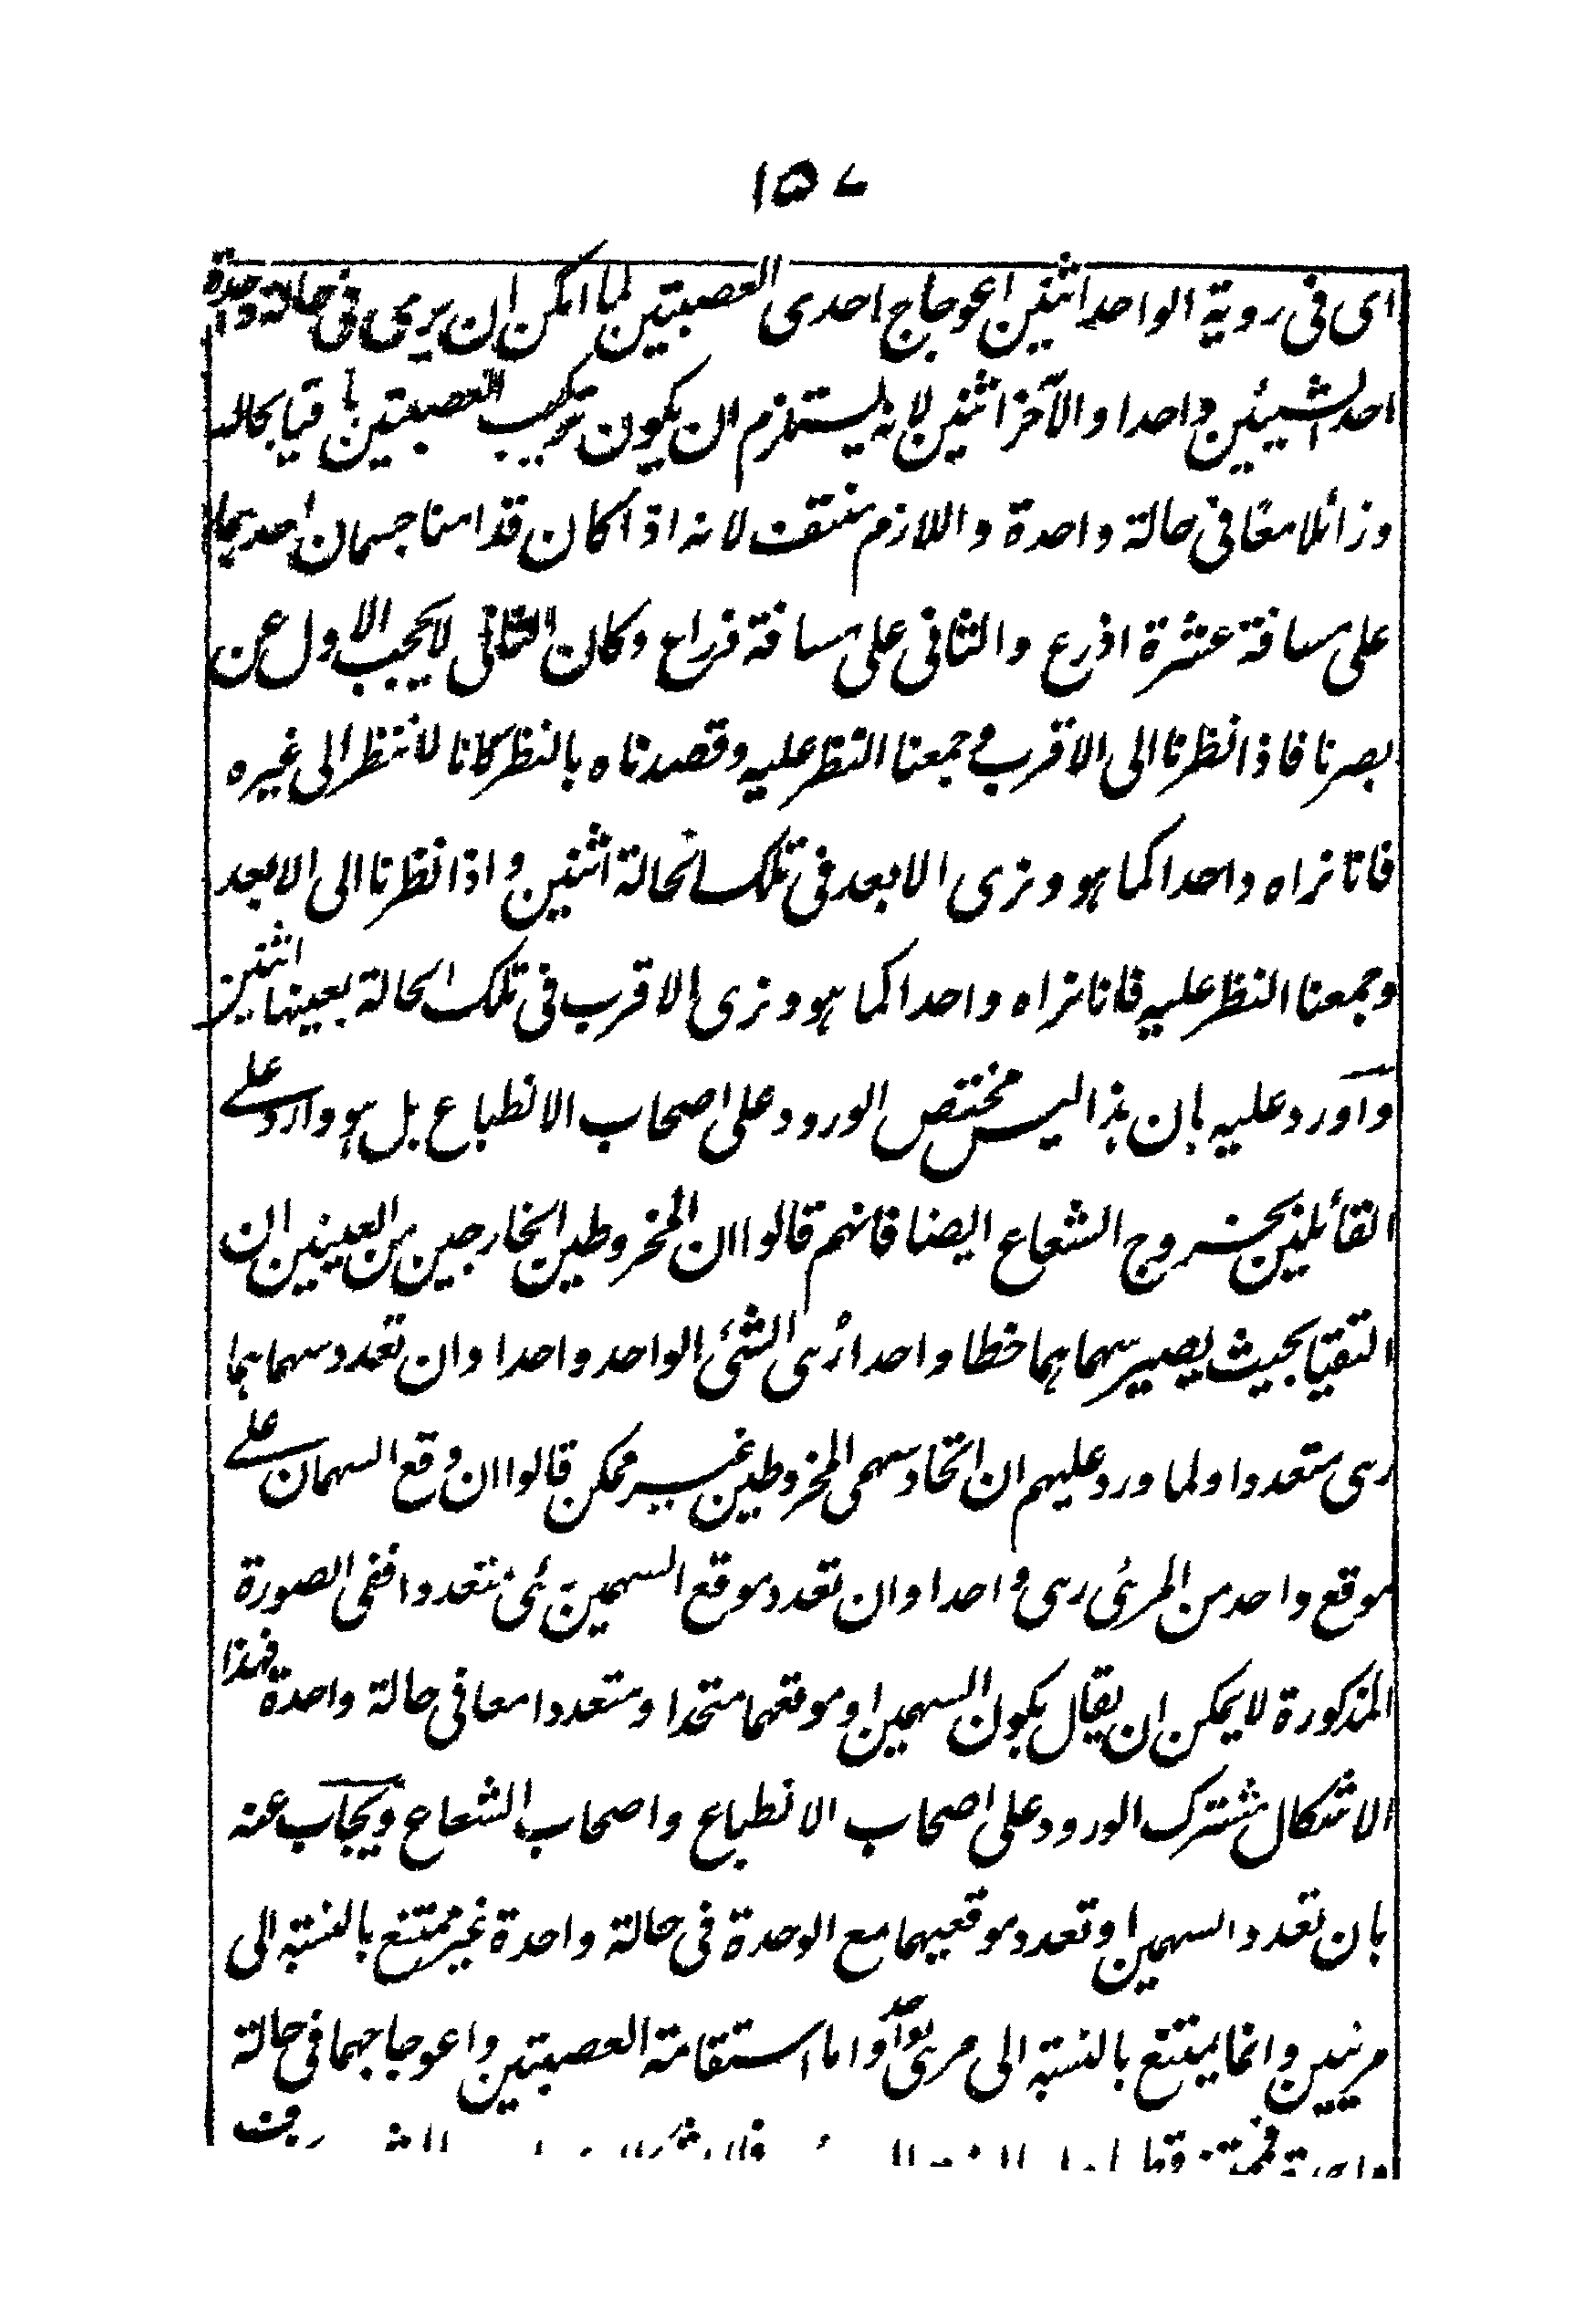 ١٥٧
اى فى روية الواحد اثنين اعوجاج احدى العصبتين لما امكن ان يرى فى حالة واحدة
احد الشيئين واحدا والآخر اثنين لانه يستلزم ان يكون تركيب العصبتين باقيا بحاله
وزائلا معا فى حالة واحدة واللازم منتف لانه اذا كان قدامنا جسمان احدهما
على مسافة عشرة اذرع والثانى على مسافة ذراع وكان الثانى لا يحجب الاول عن
بصرنا فاذا نظرنا الى الاقرب وجمعنا النظر عليه وقصدناه بالنظر كانا لا ننظر الى غيره
فانا نراه واحدا كما هو ونرى الابعد فى تلك الحالة اثنين واذا نظرنا الى الابعد
وجمعنا النظر عليه فانا نراه واحدا كما هو ونرى الاقرب فى تلك الحالة بعينها اثنين
واورد عليه بان هذا ليس مختص الورود على اصحاب الانطباع بل هو وارد على
القائلين بخروج الشعاع ايضا فانهم قالوا ان المخروطين الخارجين من العينين ان
التقيا بحيث يصير سهماهما خطا واحدا رئى الشئ الواحد واحدا وان تعدد سهماهما
رئى متعددا ولما ورد عليهم ان اتحاد سهمى المخروطين غير ممكن قالوا ان وقع السهمان على
موقع واحد من المرئى رئى واحدا وان تعدد موقع السهمين رئى متعددا ففى الصورة
المذكورة لا يمكن ان يقال بكون السهمين او موقعهما متحدا ومتعددا معا فى حالة واحدة فهذا
الاشكال مشترك الورود على اصحاب الانطباع واصحاب الشعاع ويجاب عنه
بان تعدد السهمين او تعدد موقعيهما مع الوحدة فى حالة واحدة غير ممتنع بالنسبة الى
مرئيين وانما يمتنع بالنسبة الى مرئى واحد واما استقامة العصبتين واعوجاجهما فى حالة